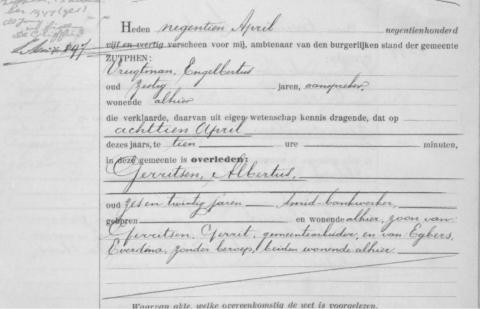 Heden negentien April negentienhonderd
vijf en veertig verscheen voor mij, ambtenaar van den burgerlijken stand der gemeente
ZUTPHEN:
Vrugtman, Engelbertus
oud zestig jaren, aanspreker,
wonende alhier
die verklaarde, daarvan uit eigen wetenschap kennis dragende, dat op
achttien April
dezes jaars, te tien ure minuten,
in deze gemeente is overleden:
Gerritsen, Albertus,
oud zes en twintig jaren Smid-bankwerker,
geboren en wonende alhier, zoon van
Gerritsen, Gerrit, gemeentearbeider, en van Egbers,
Everdina, zonder beroep, beiden wonende alhier.
Waarvan akte, welke overeenkomstig de wet is voorgelezen.